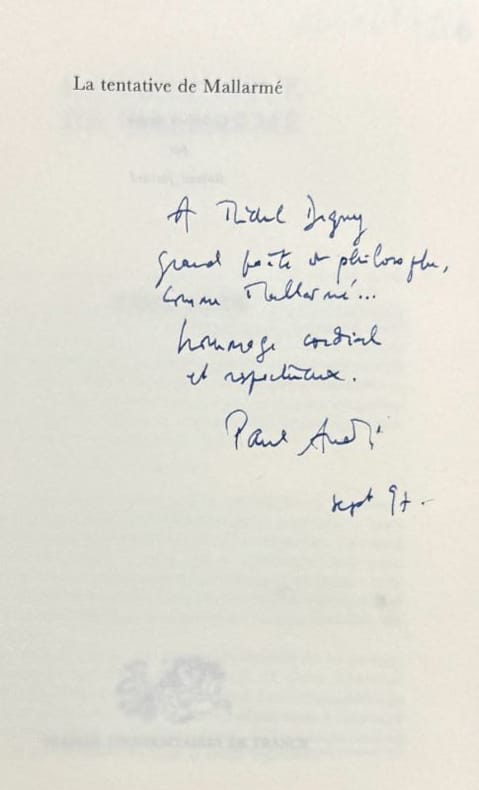 La tentative de Mallarmé
A Michel Deguy
grand poète et philosophe,
comme Mallarmé...
hommage cordial
et respectueux.
Paul Audi
sept 97.
PRESSES UNIVERSITAIRES DE FRANCE